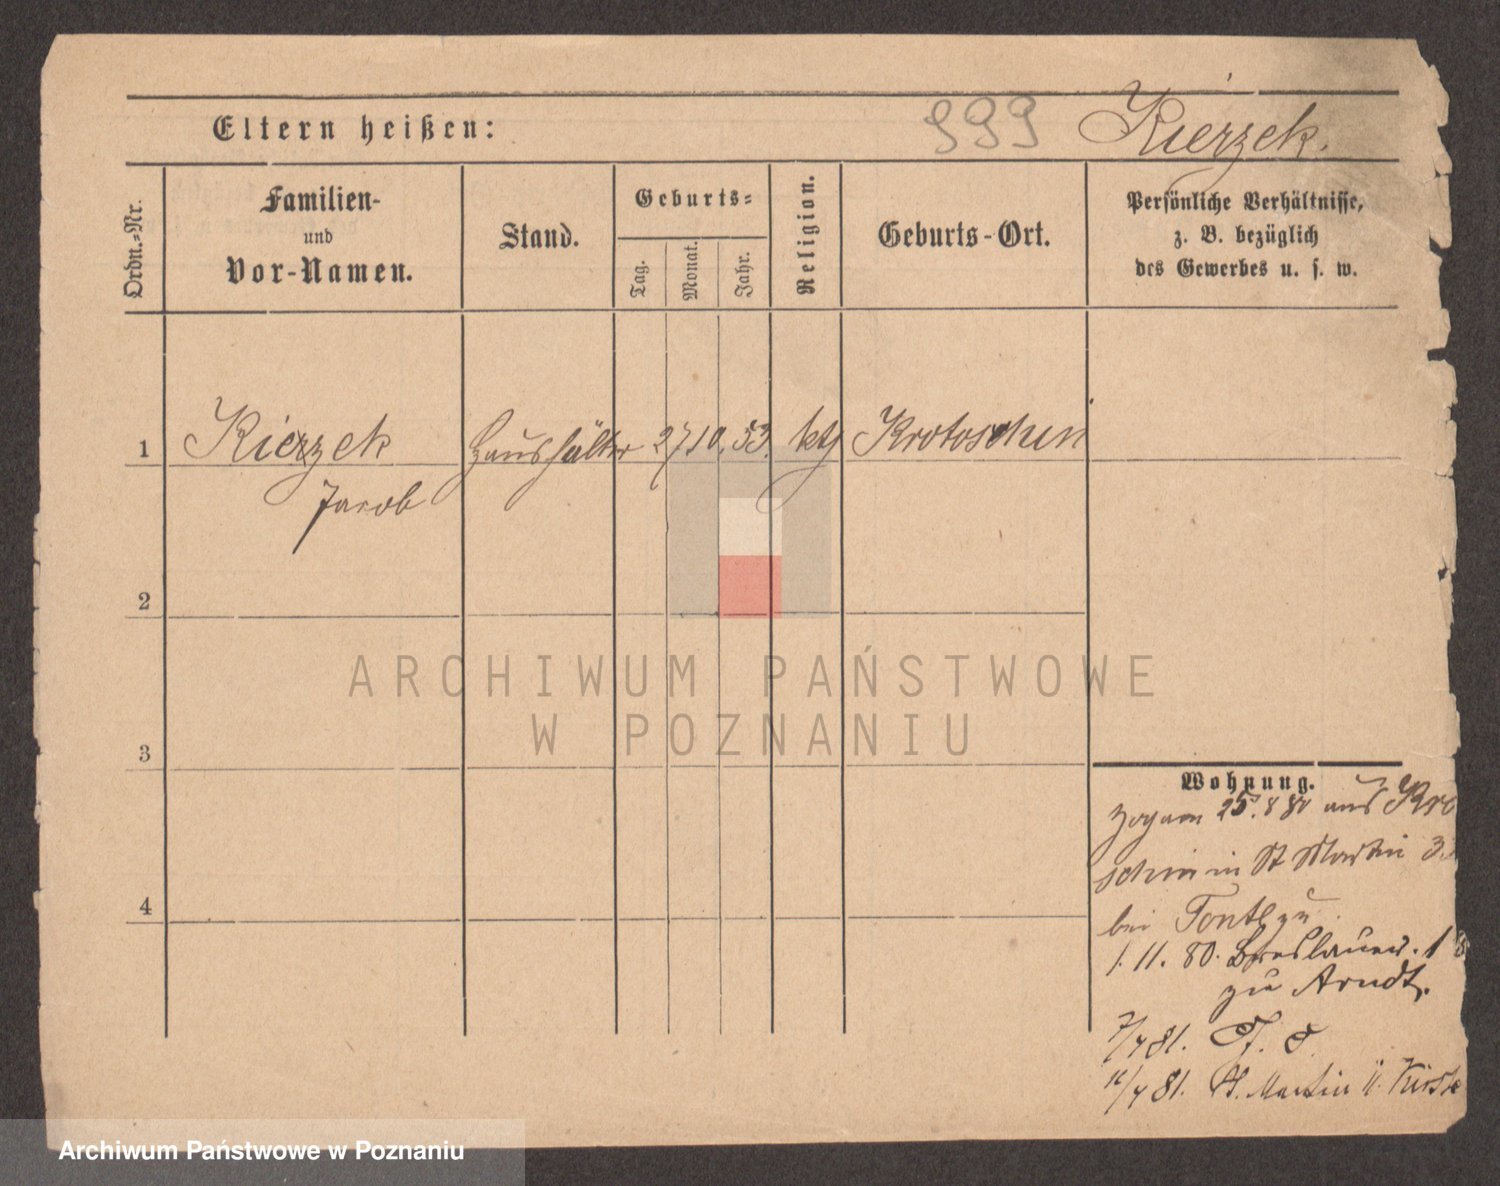 Eltern heißen: 999 Kierzek.
Ordn.-Nr.
Familien-
und
Vor-Namen.
Stand.
Geburts-
Tag.
Monat.
Jahr.
Religion.
Geburts-Ort.
Persönliche Verhältnisse,
z. B. bezüglich
des Gewerbes u. s. w.
1 Kierzek Haushälter 27 10. 53. kth Krotoschin
Jacob
2
3
4
ARCHIWUM PAŃSTWOWE
W POZNANIU
Wohnung.
zog am 25. 8 80 aus Kro
schin in St Martin 3
bei zu
1. 11. 80. Breslauer. 1
zu Arndt.
7/4 81.
4 81. St. Martin 11.
Archiwum Państwowe w Poznaniu